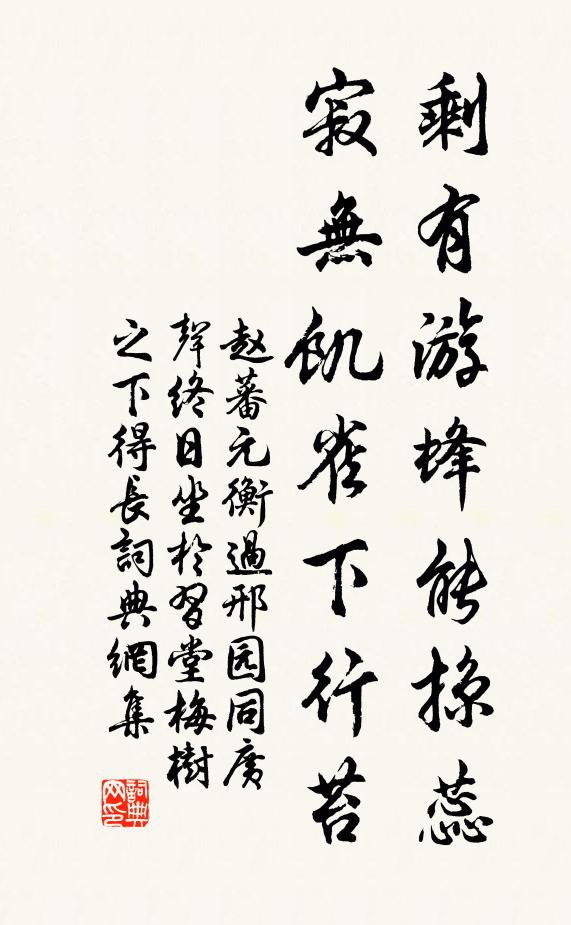 剩有游蜂能掠蕊
寂無飢雀下行苔
赵蕃元衡過邢园同广
聲终日坐於習堂梅樹
之下得長詞典網集
詞典
网印